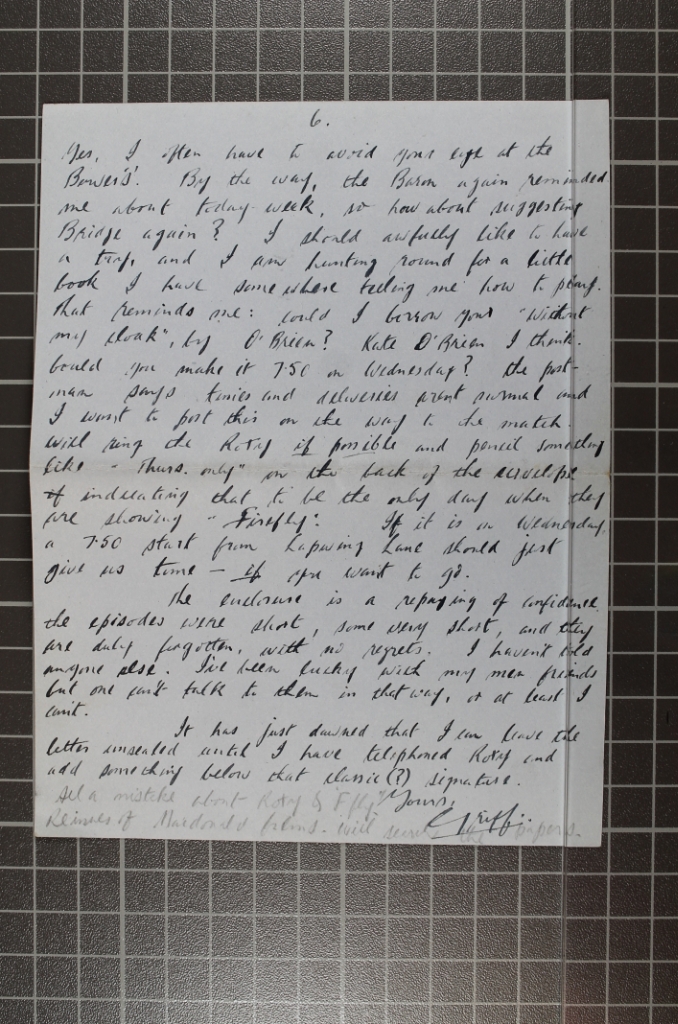 6.
Yes, I often have to avoid your eye at the
Bowers'. By the way, the Baron again reminded
me about today week, so how about suggesting
Bridge again? I should awfully like to have
a try, and I am hunting round for a little
book I have somewhere telling me how to play.
That reminds me: could I borrow your "Without
my cloak", by O'Brien? Kate O'Brien I think.
Could you make it 7.50 on Wednesday? The post-
man says times and deliveries aren't normal and
I want to post this on the way to the match.
Will ring the Roxy if possible and pencil something
like "Thurs. only" on the back of the envelope
if indicating that to be the only day when they
are showing "Firefly". If it is on Wednesday,
a 7.50 start from Lapwing Lane should just
give us time – if you want to go.
The enclosure is a repaying of confidence,
the episodes were short, some very short, and they
are duly forgotten, with no regrets. I haven't told
anyone else. I've been lucky with my men friends
but one can't talk to them in that way, or at least I
can't.
It has just dawned that I can leave the
letter unsealed until I have telephoned Roxy and
add something below that classic(?) signature.
Yours,
Griff.
All a mistake about Roxy & F'fly"
of Macdonald films. Will the papers.